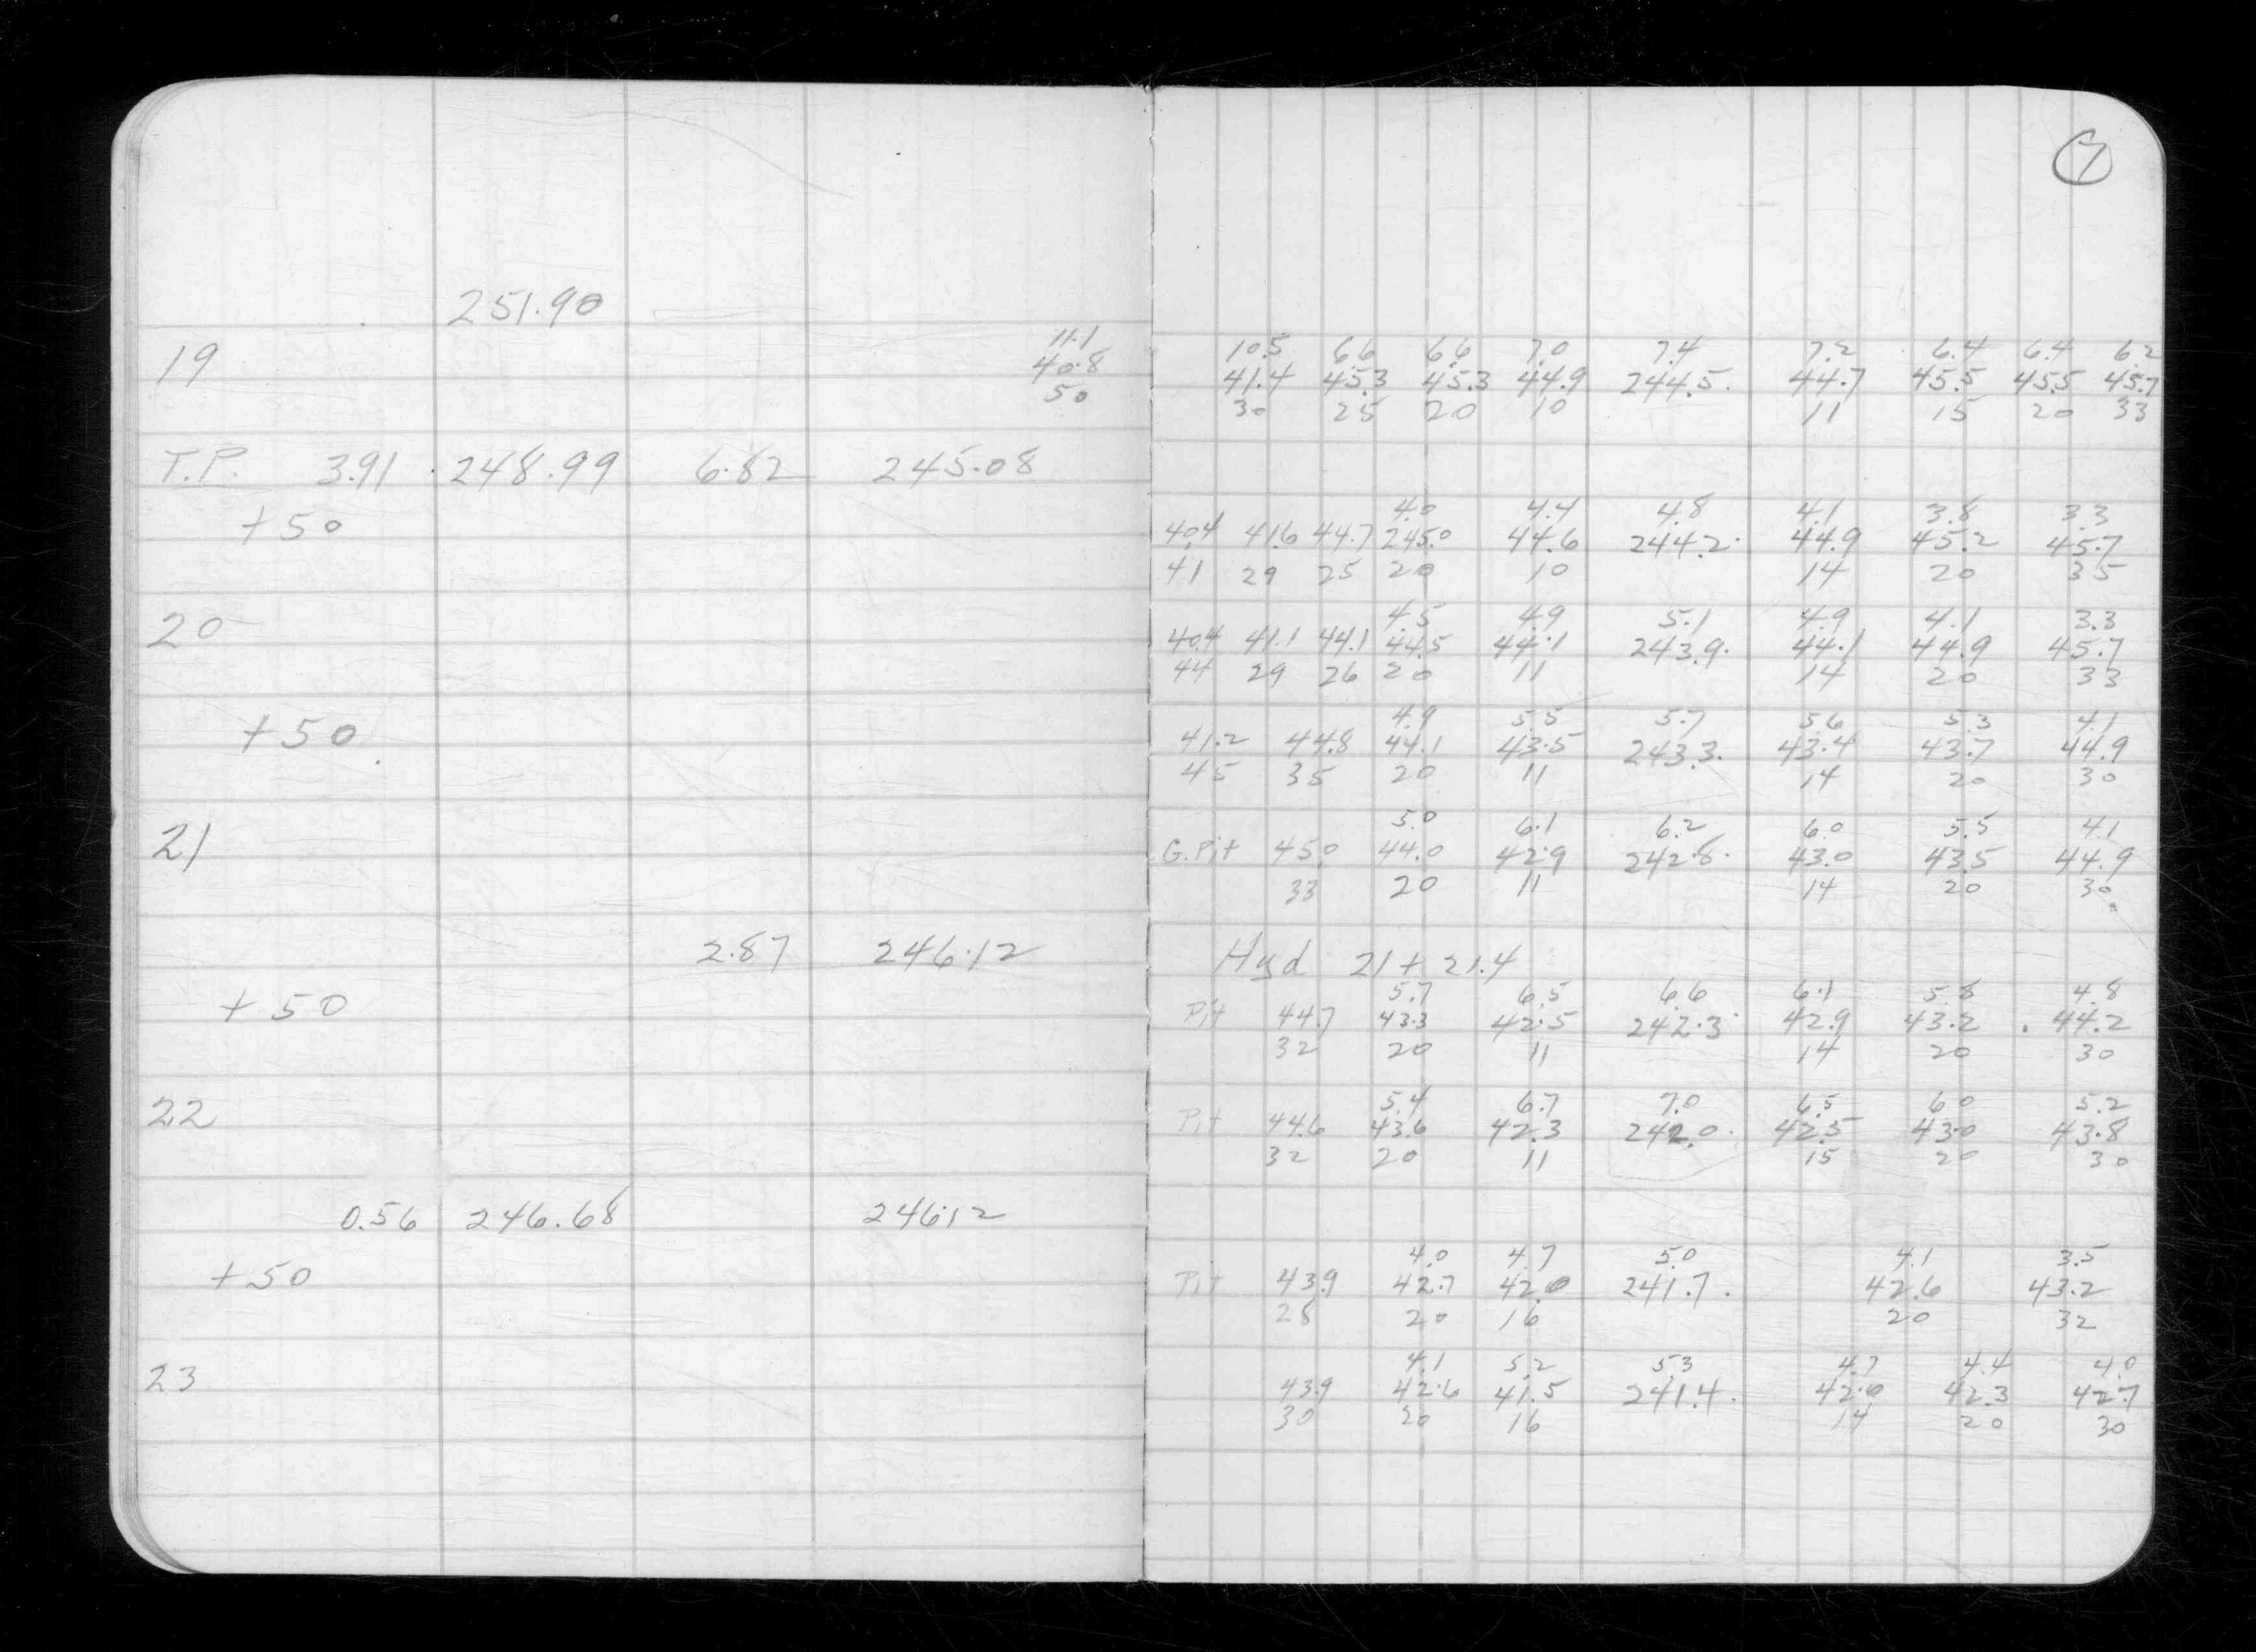 7
251.90
11.1 10.5 6.6 6.6 7.0 7.4 7.2 6.4 6.4 6.2
19 40.8 41.4 45.3 45.3 44.9 244.5 44.7 45.5 45.5 45.7
50 30 25 20 10 11 15 20 33
T.P. 3.91 248.99 6.82 245.08
4.0 4.4 4.8 4.1 3.8 3.3
+50 40.4 41.6 44.7 245.0 44.6 244.2 44.9 45.2 45.7
41 29 25 20 10 14 20 35
4.5 4.9 5.1 4.9 4.1 3.3
20 40.4 41.1 44.1 44.5 44.1 243.9 44.1 44.9 45.7
44 29 26 20 11 14 20 33
4.9 5.5 5.7 5.6 5.3 4.1
+50 41.2 44.8 44.1 43.5 243.3 43.4 43.7 44.9
45 35 20 11 14 20 30
5.0 6.1 6.2 6.0 5.5 4.1
21 G.Pit 45.0 44.0 42.9 242.8 43.0 43.5 44.9
33 20 11 14 20 30
2.87 246.12 Hyd 21+21.4
5.7 6.5 6.6 6.1 5.8 4.8
+50 Pit 44.7 43.3 42.5 242.3 42.9 43.2 44.2
32 20 11 14 20 30
5.4 6.7 7.0 6.5 6.0 5.2
22 Pit 44.6 43.6 42.3 242.0 42.5 43.0 43.8
32 20 11 15 20 30
0.56 246.68 246.12
4.0 4.7 5.0 4.1 3.5
+50 Pit 43.9 42.7 42.0 241.7 42.6 43.2
28 20 16 20 32
4.1 5.2 5.3 4.7 4.4 4.0
23 43.9 42.6 41.5 241.4 42.0 42.3 42.7
30 20 16 14 20 30